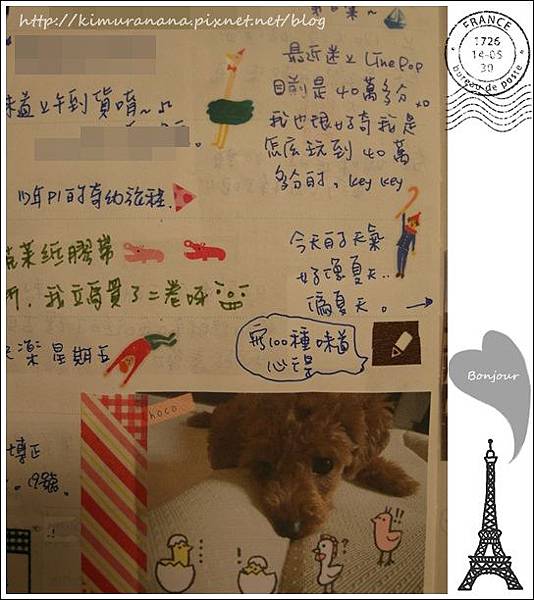 http://kimuranana.pixnet.net/blog
味道上午到貨唷~
少年Pi的奇幻旅程.
紙膠帶
我立馬買了二卷呀
星期五
博正
最近迷上LinePop
目前是40萬多分
我也很好奇我是
怎麼玩到40萬
多分的. key key
今天的天氣
好像夏天..
偽夏天。→
寫100種味道
心得
koco.
FRANCE
1726
14-05
30
bureau de poste
Bonjour